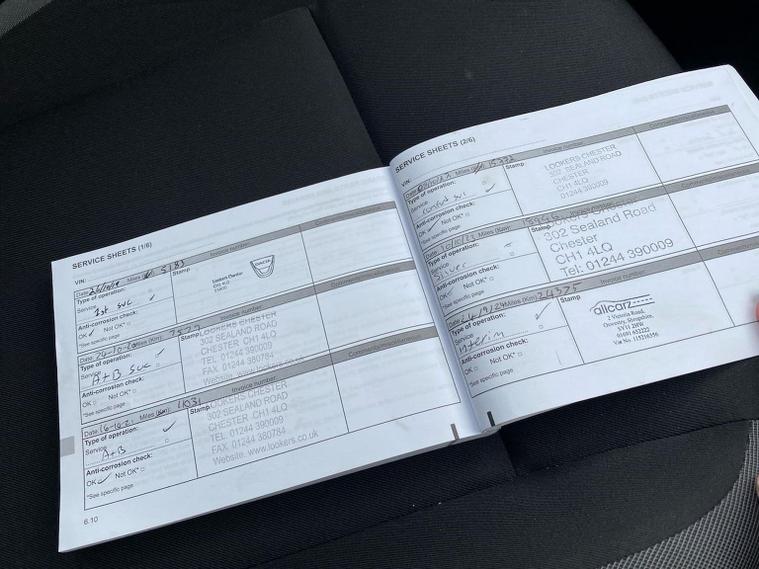 SERVICE SHEETS (1/6)
VIN:
Date: Miles 5183
Invoice number:
Type of operation:
Stamp
Service
1st svc
Lookers Chester
DACIA
Anti-corrosion check:
OK Not OK*
*See specific page
Date: Miles (Km): 7529
Invoice number:
Type of operation:
Stamp
Service
A+B svc
LOOKERS CHESTER
302 SEALAND ROAD
CHESTER CH1 4LQ
TEL 01244 390009
FAX. 01244 380784
Website. www.lookers
Anti-corrosion check:
OK Not OK*
*See specific page
Date: 16-10-21 Miles (Km):
Invoice number:
Type of operation:
Stamp
Service
A+B
LOOKERS CHESTER
302 SEALAND ROAD
CHESTER CH1 4LQ
TEL 01244 390009
FAX. 01244 380784
Website. www.lookers.co.uk
Anti-corrosion check:
OK Not OK*
*See specific page
6.10
SERVICE SHEETS (2/6)
VIN:
Date: Miles 15,332
Invoice number:
Type of operation:
Stamp
Service
svc
LOOKERS CHESTER
302 SEALAND ROAD
CHESTER
CH1 4LQ
01244 390009
Anti-corrosion check:
OK Not OK*
*See specific page
Date: Miles
Invoice number:
Type of operation:
Stamp
Service
Silver
Lookers Chester
302 Sealand Road
Chester
CH1 4LQ
Tel: 01244 390009
Anti-corrosion check:
OK Not OK*
*See specific page
Date: 24/9/24 Miles (Km): 24375
Invoice number:
Type of operation:
Stamp
Service
Interim
allcarz
2 Victoria Road,
Oswestry, Shropshire,
SY11 2HW
01691 652222
Vat No. 115216356
Anti-corrosion check:
OK Not OK*
*See specific page